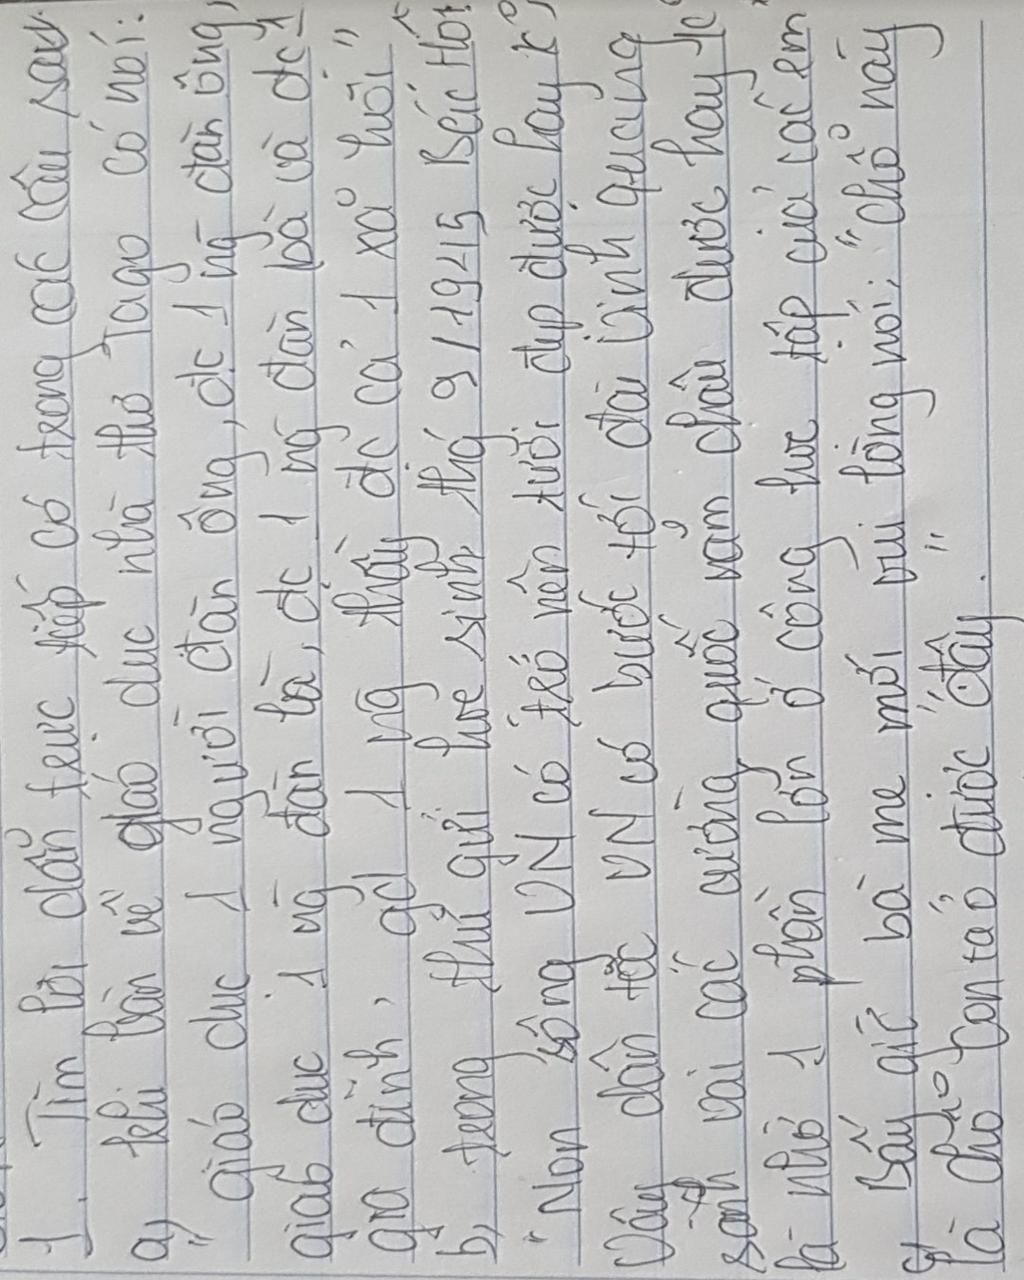 1. Tìm lời dẫn trực tiếp có trong các câu sau:
a, khi bàn về giáo dục nhà thơ Tago có nói:
" giáo dục 1 người đàn ông, đc 1 ng đàn ông,
giáo dục 1 ng đàn bà, đc 1 ng đàn bà và đc 1
gia đình, gd 1 ng thầy đc cả 1 xã hội "
b, trong thư gửi học sinh thg 9/1945 Bác Hồ:
" Non sông VN có trở nên tươi đẹp được hay k,
dân tộc VN có bước tới đài vinh quang
sánh vai các cường quốc năm châu được hay k
là nhờ 1 phần lớn ở công học tập của các em
c, Bấy giờ bà mẹ mới vui lòng nói: " chỗ này
là chỗ con ta ở được đây. "